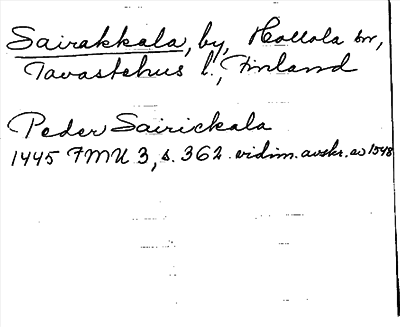 Sairakkala, by, Hollola sn,
Tavastehus l., Finland
Peder Sairickala
1445 FMU 3, s. 362. vidim. avskr. av 1548